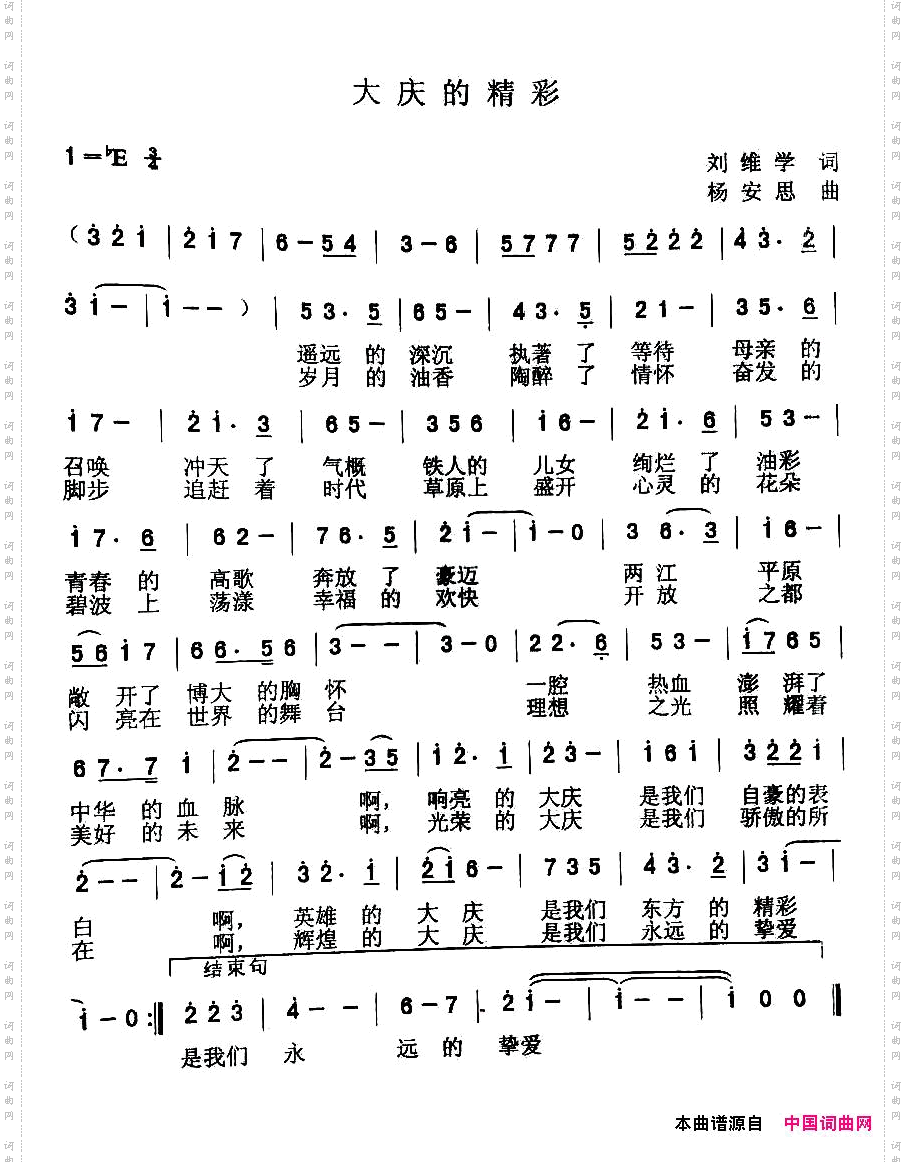 大庆的精彩
1=♭E 3/4
刘维学 词
杨安思 曲
(3̇ 2̇ 1̇ | 2̇ 1̇ 7 | 6 – 5 4 | 3 – 6 | 5 7 7 7 | 5 2̇ 2̇ 2̇ | 4̇ 3̇· 2̇ |
3̇ 1̇ – | 1̇ – – ) | 5 3· 5 | 6 5 – | 4 3· 5̣ | 2 1 – | 3 5· 6 |
遥远 的 深沉 执著 了 等待 母亲 的
岁月 的 油香 陶醉 了 情怀 奋发 的
1̇ 7 – | 2̇ 1̇· 3̇ | 6 5 – | 3 5 6 | 1̇ 6 – | 2̇ 1̇· 6 | 5 3 – |
召唤 冲天 了 气概 铁人的 儿女 绚烂 了 油彩
脚步 追赶 着 时代 草原上 盛开 心灵 的 花朵
1̇ 7· 6 | 6 2 – | 7 6· 5 | 2̇ 1̇ – | 1̇ – 0 | 3 6· 3 | 1̇ 6 – |
青春 的 高歌 奔放 了 豪迈 两江 平原
碧波 上 荡漾 幸福 的 欢快 开放 之都
5 6 1̇ 7 | 6 6· 5 6 | 3 – – | 3 – 0 | 2 2· 6̣ | 5 3 – | 1̇ 7 6 5 |
敞 开了 博大 的胸 怀 一腔 热血 澎湃了
闪 亮在 世界 的舞 台 理想 之光 照耀着
6 7· 7 1̇ | 2̇ – – | 2̇ – 3 5 | 1̇ 2̇· 1̇ | 2̇ 3̇ – | 1̇ 6 1̇ | 3̇ 2̇ 2̇ 1̇ |
中华 的 血 脉 啊, 响亮 的 大庆 是我们 自豪的表
美好 的 未 来 啊, 光荣 的 大庆 是我们 骄傲的所
2̇ – – | 2̇ – 1̇ 2̇ | 3̇ 2̇· 1̇ | 2̇ 1̇ 6 – | 7 3 5 | 4̇ 3̇· 2̇ | 3̇ 1̇ – |
白 啊, 英雄 的 大 庆 是我们 东方 的 精彩
在 啊, 辉煌 的 大 庆 是我们 永远 的 挚爱
结束句
1̇ – 0 :‖ 2̇ 2̇ 3̇ | 4̇ – – | 6 – 7 | 2̇ 1̇ – | 1̇ – – | 1̇ 0 0 ‖
是我们 永 远 的 挚爱
本曲谱源自 中国词曲网